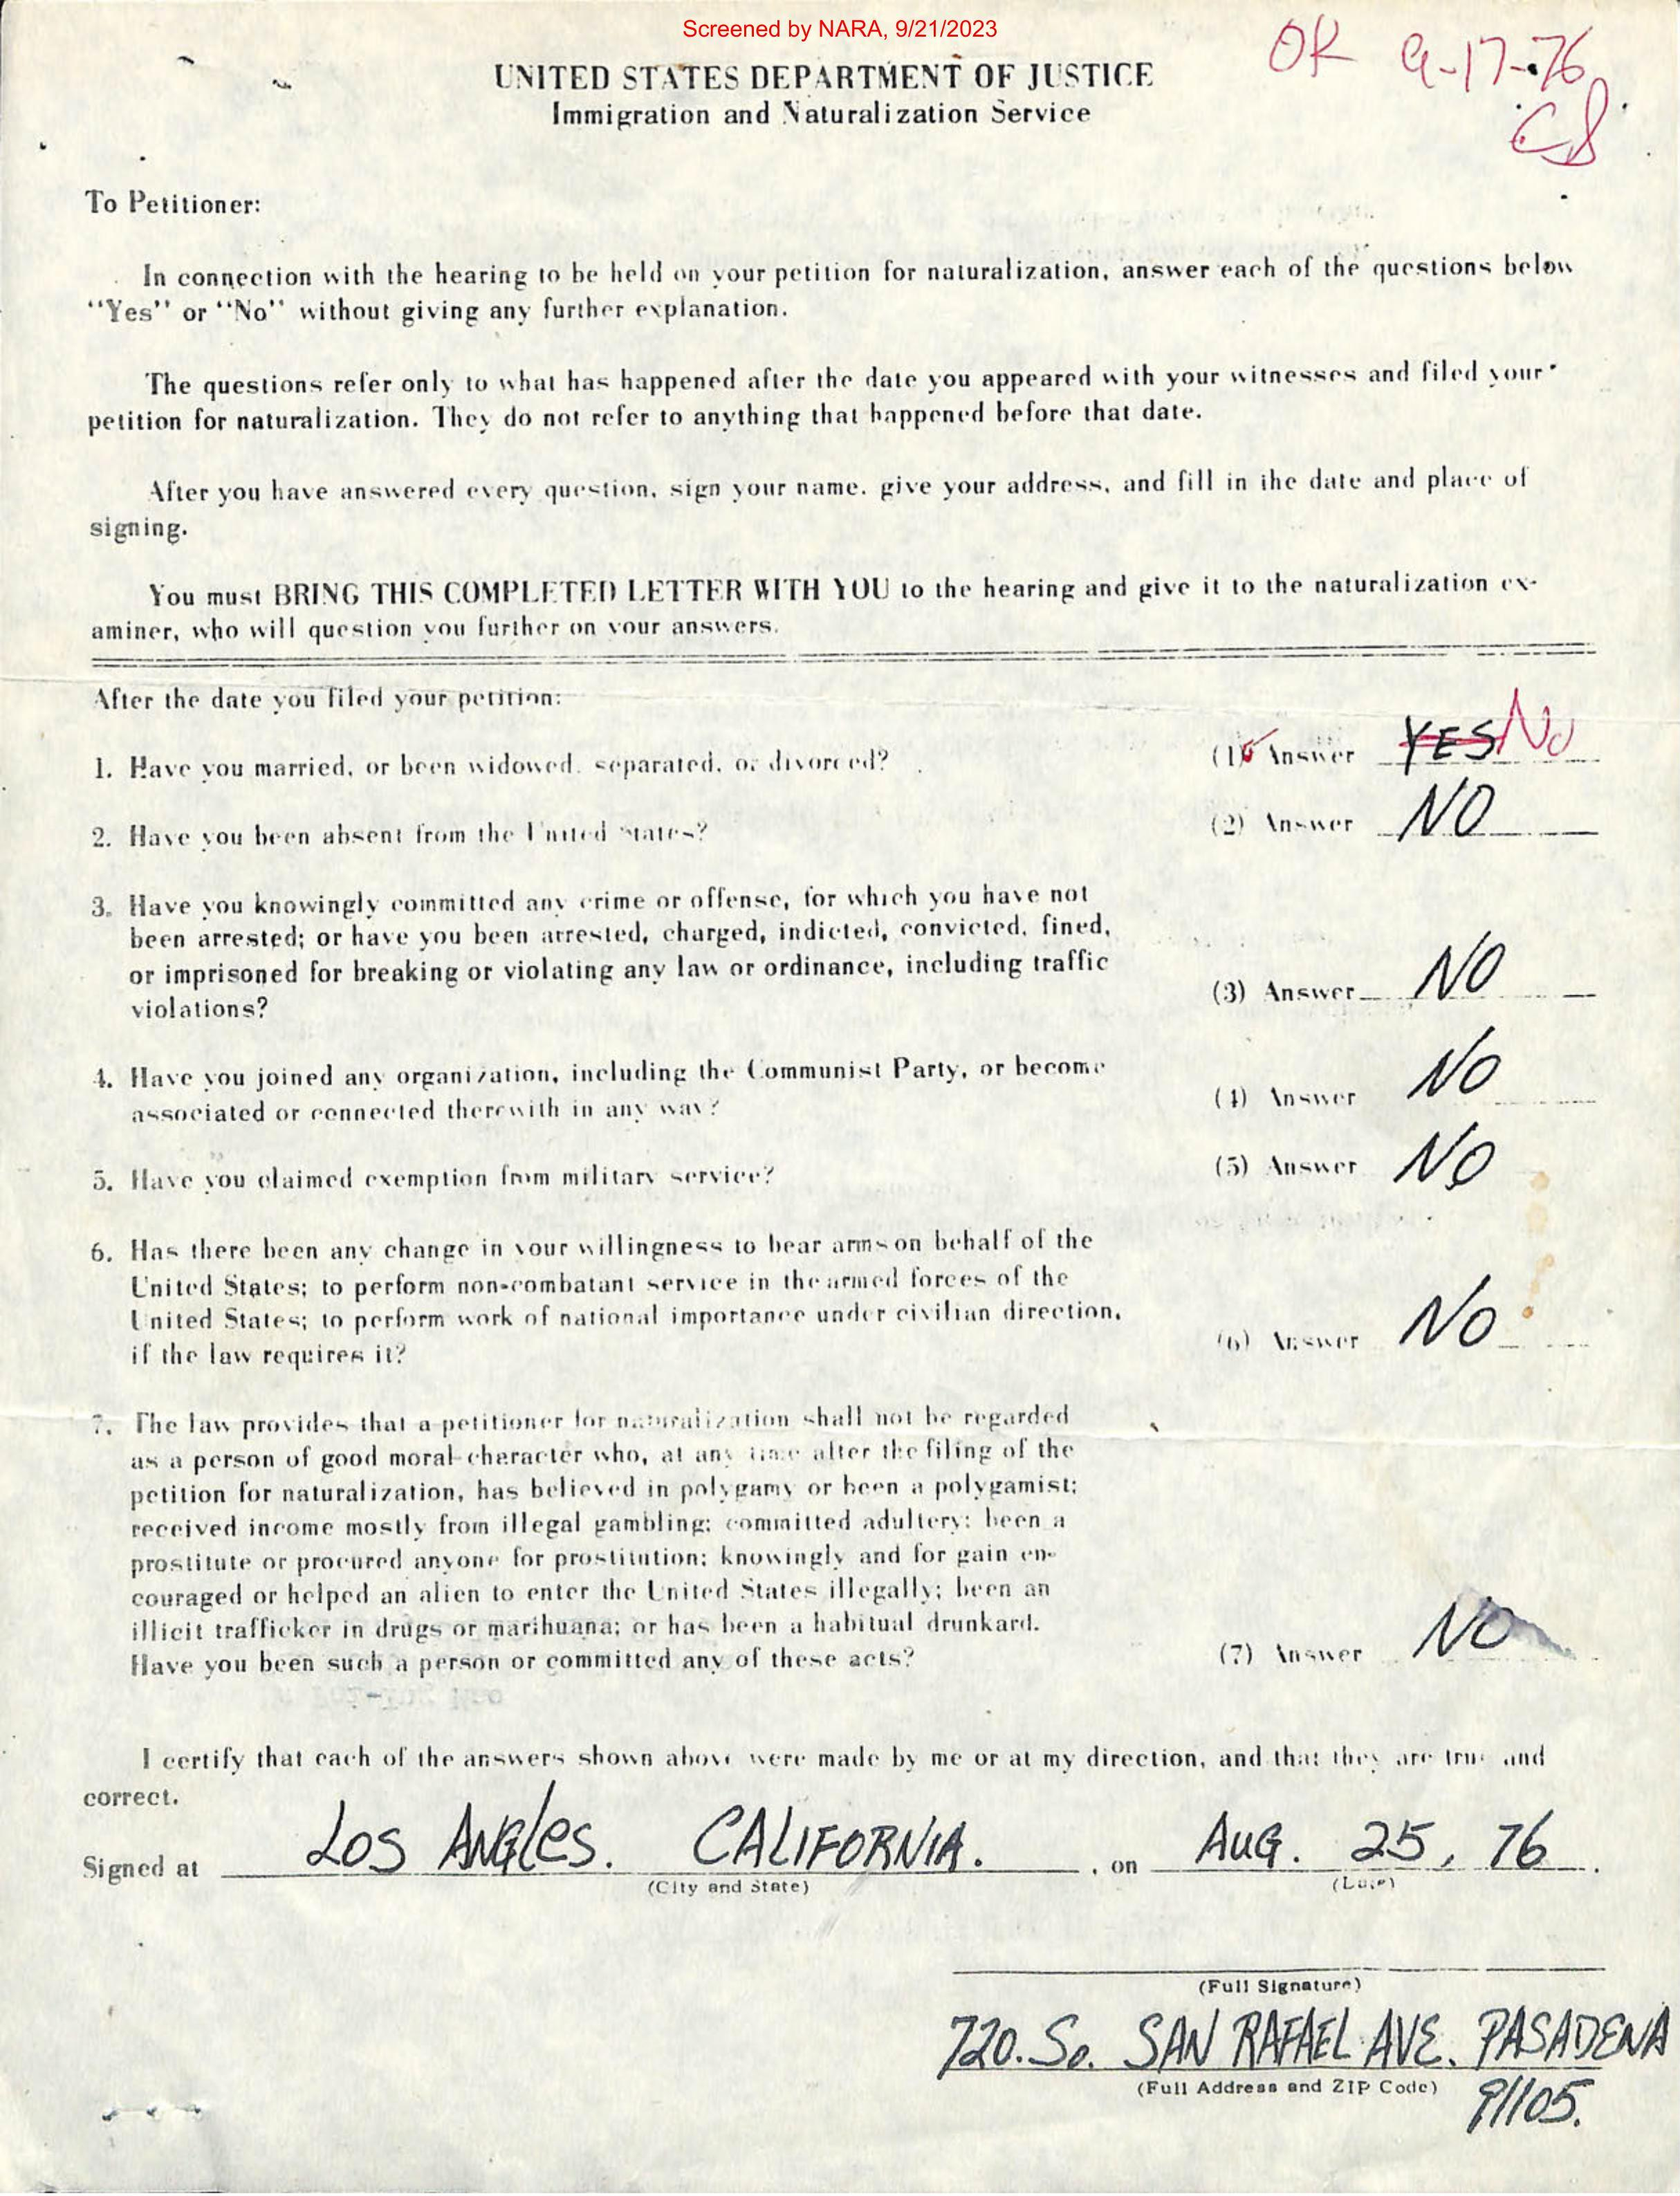 Screened by NARA, 9/21/2023
OK 9-17-76
CS
UNITED STATES DEPARTMENT OF JUSTICE
Immigration and Naturalization Service
To Petitioner:
In connection with the hearing to be held on your petition for naturalization, answer each of the questions below
"Yes" or "No" without giving any further explanation.
The questions refer only to what has happened after the date you appeared with your witnesses and filed your
petition for naturalization. They do not refer to anything that happened before that date.
After you have answered every question, sign your name, give your address, and fill in the date and place of
signing.
You must BRING THIS COMPLETED LETTER WITH YOU to the hearing and give it to the naturalization ex-
aminer, who will question you further on your answers.
After the date you filed your petition:
1. Have you married, or been widowed, separated, or divorced? (1) Answer YES NO
2. Have you been absent from the United States? (2) Answer NO
3. Have you knowingly committed any crime or offense, for which you have not
been arrested; or have you been arrested, charged, indicted, convicted, fined,
or imprisoned for breaking or violating any law or ordinance, including traffic
violations? (3) Answer NO
4. Have you joined any organization, including the Communist Party, or become
associated or connected therewith in any way? (4) Answer NO
5. Have you claimed exemption from military service? (5) Answer NO
6. Has there been any change in your willingness to bear arms on behalf of the
United States; to perform non-combatant service in the armed forces of the
United States; to perform work of national importance under civilian direction,
if the law requires it? (6) Answer NO
7. The law provides that a petitioner for naturalization shall not be regarded
as a person of good moral character who, at any time after the filing of the
petition for naturalization, has believed in polygamy or been a polygamist;
received income mostly from illegal gambling; committed adultery; been a
prostitute or procured anyone for prostitution; knowingly and for gain en-
couraged or helped an alien to enter the United States illegally; been an
illicit trafficker in drugs or marihuana; or has been a habitual drunkard.
Have you been such a person or committed any of these acts? (7) Answer NO
I certify that each of the answers shown above were made by me or at my direction, and that they are true and
correct.
Signed at LOS ANGles. CALIFORNIA. , on AUG. 25, 76.
(City and State) (Date)
(Full Signature)
720. So. SAN RAFAEL AVE. PASADENA
(Full Address and ZIP Code) 91105.